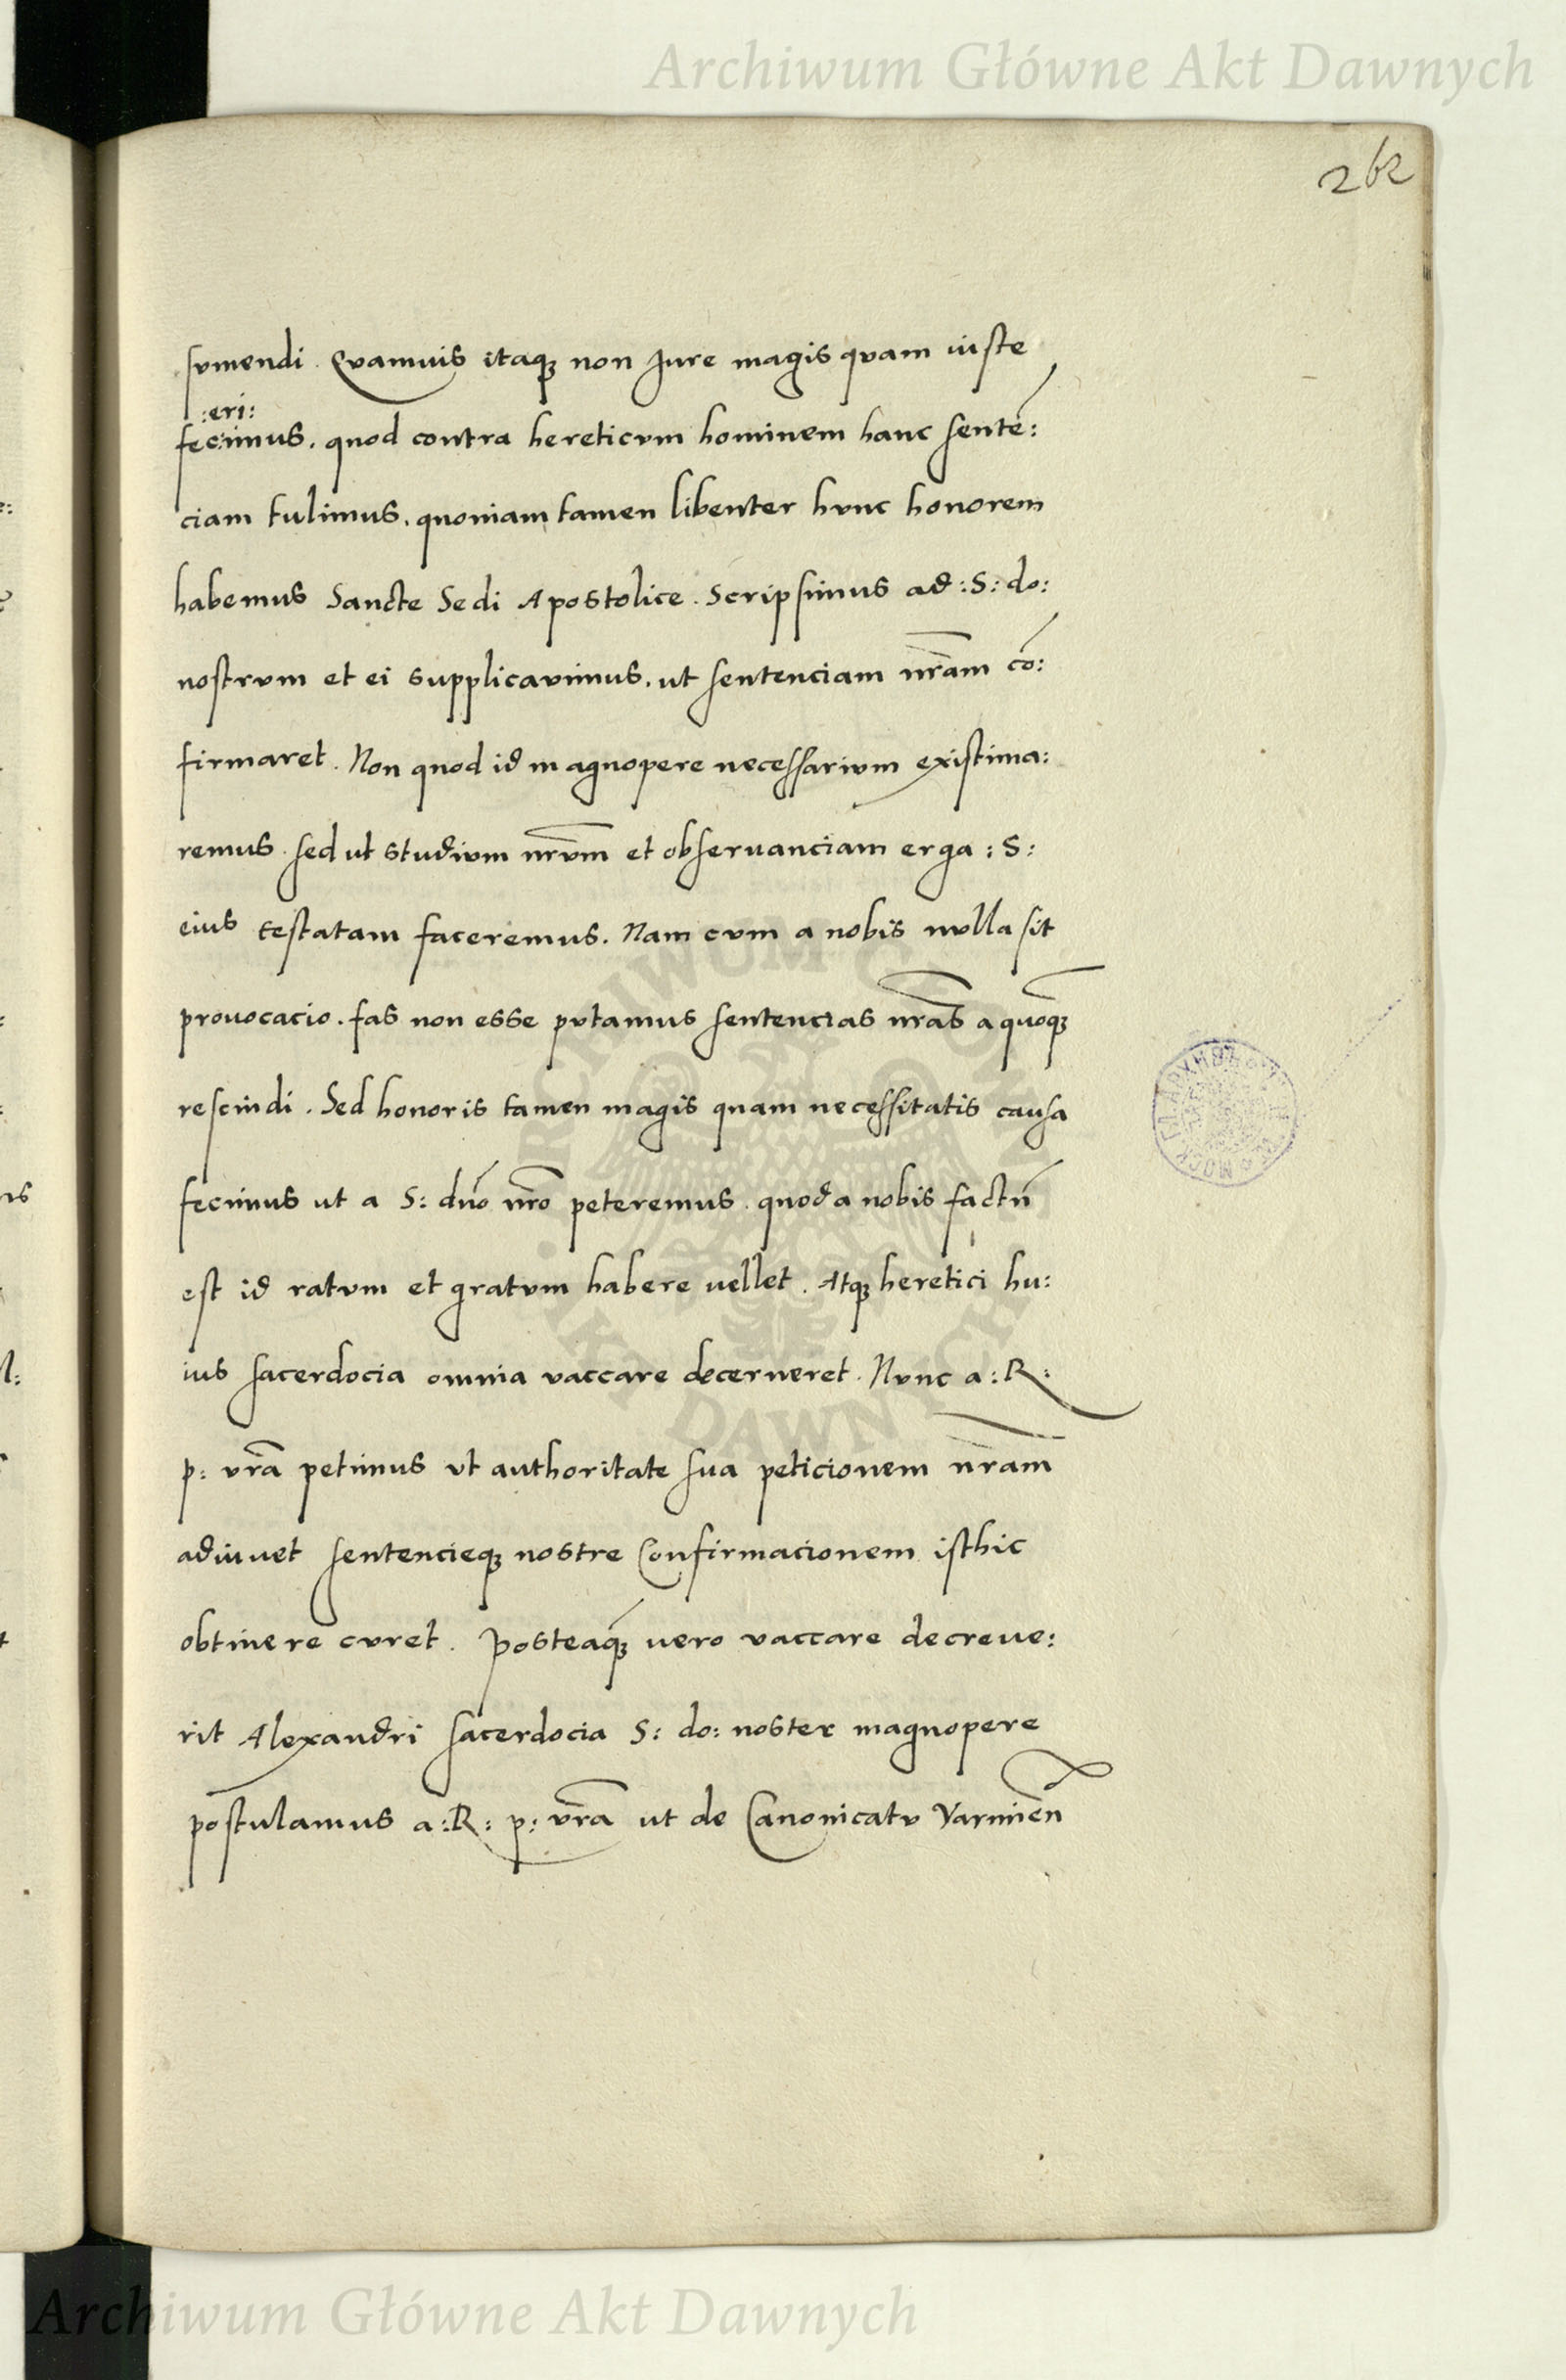 Archiwum Główne Akt Dawnych
262
sumendi. Quamuis itaqꝫ non Jure magis quam iuste
:eri:
fec:imus. quod contra hereticum hominem hanc senten̄:
ciam tulimus. quoniam tamen libenter hunc honorem
habemus Sancte Sedi Apostolice. Scripsimus ad :S: do:
nostrum et ei supplicauimus. ut sentenciam nr̄am cō:
firmaret. Non quod id magnopere necessarium existima:
remus. sed ut studium nr̄um et obseruanciam erga :S:
eius testatam faceremus. Nam cum a nobis nulla sit
prouocacio. fas non esse putamus sentencias nr̄as a quoqꝫ̄
rescindi. Sed honoris tamen magis quam necessitatis causa
fecimus ut a S: dn̄o nr̄o peteremus. quod a nobis factū
est id ratum et gratum habere uellet. Atqꝫ heretici hu:
ius sacerdocia omnia vaccare decerneret. Nunc a :R:
p: vr̄a petimus vt authoritate sua peticionem nr̄am
adiuuet sentencieqꝫ nostre Confirmacionem isthic
obtinere curet. Posteaqꝫ̄ uero vaccare decreue:
rit Alexandri sacerdocia S: do: noster magnopere
postulamus a :R: p: vr̄a ut de Canonicatu Varmien̄
Archiwum Główne Akt Dawnych